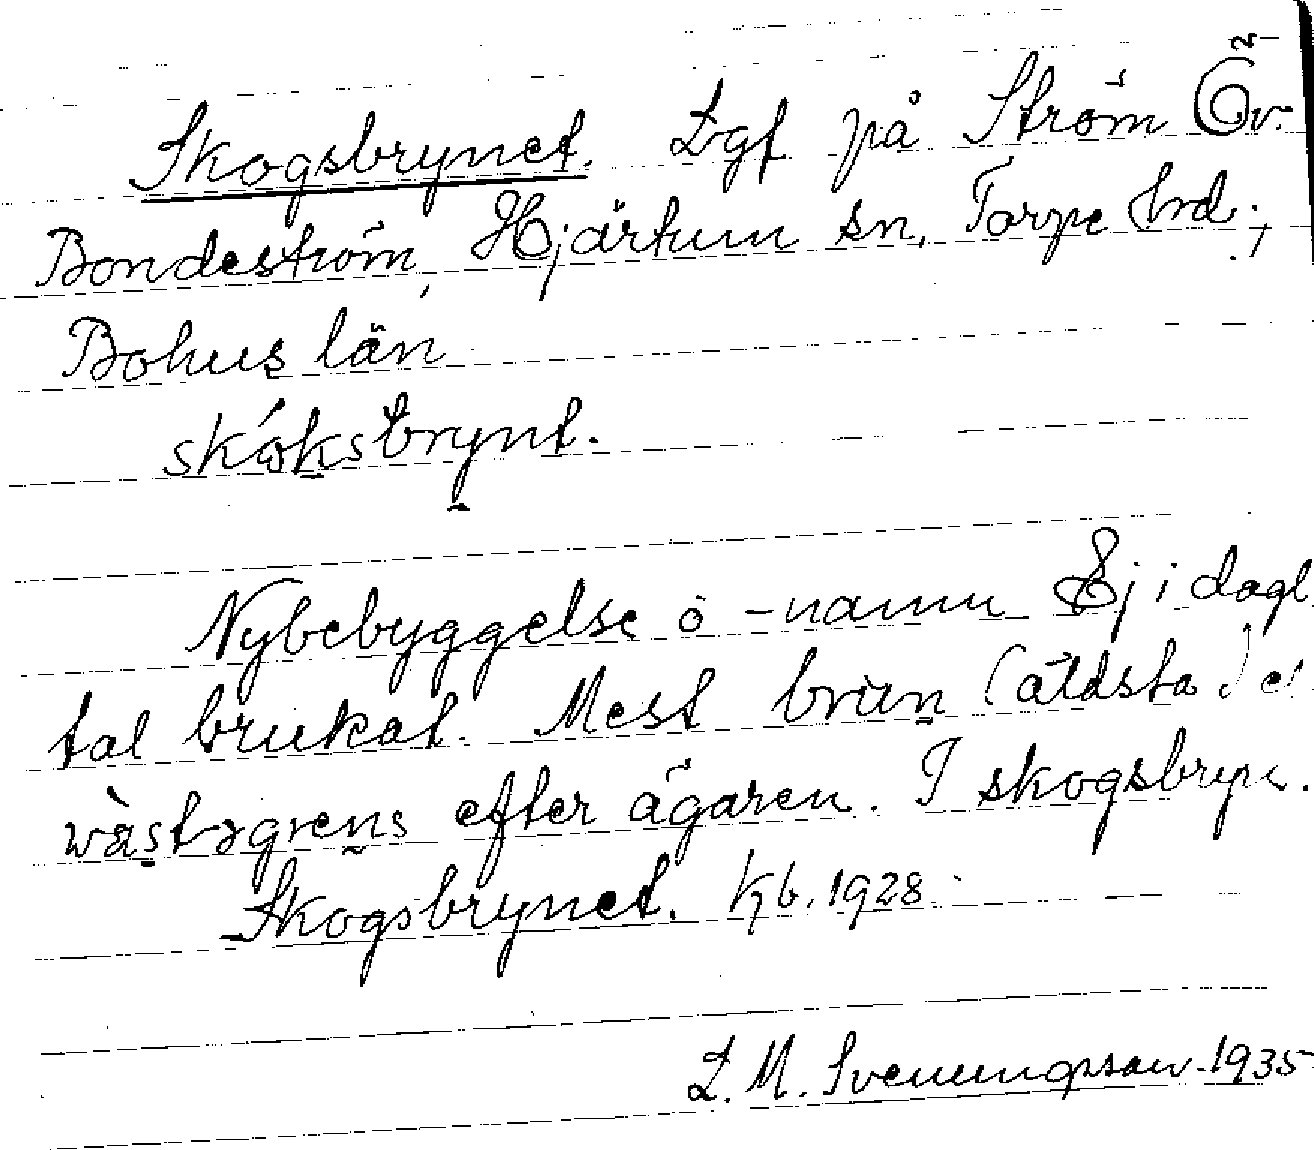 2
Skogsbrynet. Lgt på Ström Öv.
Bondeström, Hjärtum sn, Torpe hrd;
Bohus län
skóksbrynt.
Nybebyggelse o -namn Ej i dagl
tal brukat. Mest (äldsta)
wàstəgrens efter ägaren. I skogsbryn.
Skogsbrynet. Kb. 1928.
L. M. Svenungsson 1935